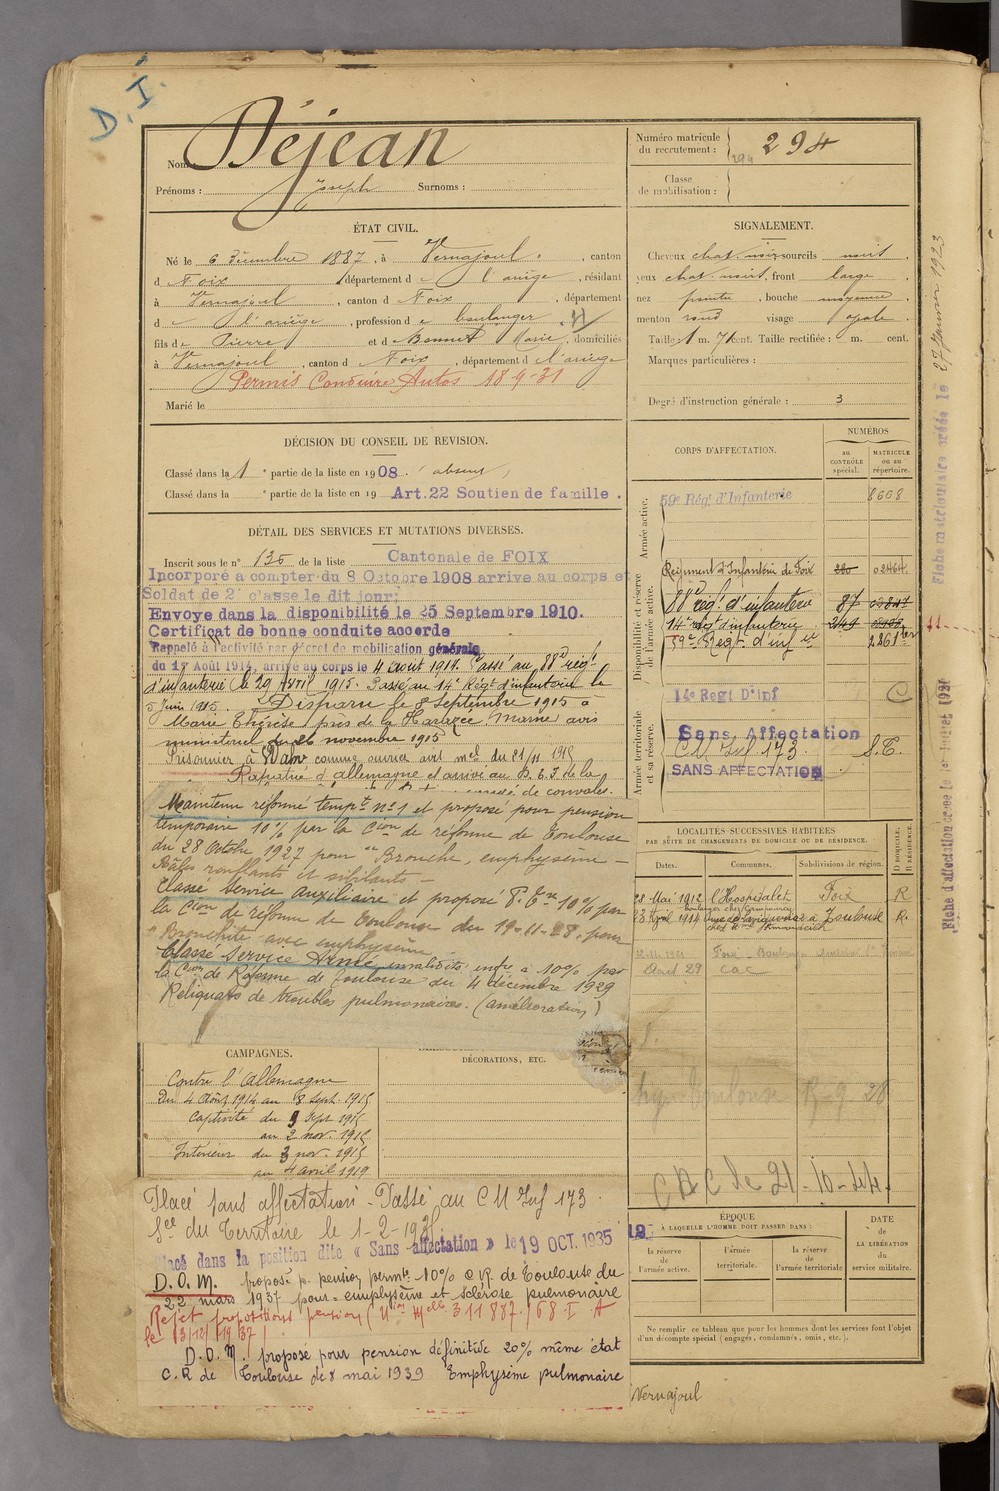 D.I.
Nom : Déjean
Prénoms : Joseph Surnoms :
Numéro matricule
du recrutement : 294 294
Classe
de mobilisation :
ÉTAT CIVIL.
Né le 6 Décembre 1887, à Vernajoul, canton
d Foix, département d e l'ariège, résidant
à Vernajoul, canton d Foix, département
d e l'ariège, profession d e boulanger
fils de Pierre et d e Bonnet Marie, domiciliés
à Vernajoul, canton d Foix, département d e l'ariège
Permis Conduire Autos 18-9-31
Marié le
SIGNALEMENT.
Cheveux chat. noir sourcils noirs
yeux chat. noirs, front large
nez pointu, bouche moyenne
menton rond visage ovale
Taille : 1 m. 71 cent. Taille rectifiée : m. cent.
Marques particulières :
Degré d'instruction générale : 3
DÉCISION DU CONSEIL DE REVISION.
Classé dans la 1e partie de la liste en 1908. (absent)
Classé dans la e partie de la liste en 19 Art.22 Soutien de famille.
DÉTAIL DES SERVICES ET MUTATIONS DIVERSES.
Inscrit sous le n° 135 de la liste Cantonale de FOIX
Incorporé a compter du 8 Octobre 1908 arrive au corps et
Soldat de 2e classe le dit jour;
Envoye dans la disponibilité le 25 Septembre 1910.
Certificat de bonne conduite accorde
Rappelé à l'activité par décret de mobilisation générale
du 1er Août 1914, arrivé au corps le 4 août 1914. Passé au 88e régt
d'infanterie le 29 Avril 1915. Passé au 14e Régt d'infanterie le
5 juin 1915. Disparu le 8 Septembre 1915 à
Marie Thérèse près de la Harazée Marne avis
ministériel du 26 novembre 1915
Prisonnier à Wahn comme ouvrier avis mel du 21/11 1915
Rapatrié d'allemagne et arrivé au D. E. I de la
congé de convales.
Maintenu réformé tempre n°1 et proposé pour pension
temporaire 10% par la Cion de réforme de Toulouse
du 28 Octobre 1927 pour "Bronche, emphysème -
Râles ronflants et sibilants -
Classé Service auxiliaire et proposé P. Tre 10% par
la Cion de réforme de Toulouse du 19-11-28, pour
"Bronchite avec emphysème
Classé Service Armé, invalidité infre à 10% par
la Cion de Réforme de Toulouse du 4 décembre 1929
Reliquats de troubles pulmonaires. (amélioration)
CAMPAGNES.
Contre l'Allemagne
Du 4 Août 1914 au 8 Sept. 1915
Captivité du 9 Sept 1915
au 2 nov. 1918
Interieur du 3 nov. 1918
au 4 avril 1919
DÉCORATIONS, ETC.
Placé sans affectation - Passé au C M Inf 173.
Sce du Territoire le 1-2-1928.
Placé dans la position dite « Sans affectation » le 19 OCT. 1935
D.O.M. proposé p. pension permte 10% C.R. de Toulouse du
22 mars 1937 pour = emphysème et sclérose pulmonaire
Rejet propositions pension (Don Mlle 311.887./68 I. A
le 13/12/1937)
D.O.M. proposé pour pension définitive 20% même état
C.R de Toulouse de 8 mai 1939 Emphysème pulmonaire
CORPS D'AFFECTATION.
NUMÉROS
au
CONTRÔLE
spécial.
MATRICULE
ou au
répertoire.
Armée active.
59e Rég. d'Infanterie 8608
Disponibilité et réserve
de l'armée active.
Régiment d'Infanterie de Foix 220 02464
88e rég. d'infanterie 87 02847
14e régt d'infanterie 249
59e Régt d'infie 2261 ter
14e Regt D'inf C
Armée territoriale
et sa réserve.
Sans Affectation
C M Inf. 173 S.T.
SANS AFFECTATION
LOCALITÉS SUCCESSIVES HABITÉES
PAR SUITE DE CHANGEMENTS DE DOMICILE OU DE RÉSIDENCE.
Dates. Communes. Subdivisions de région. D DOMICILE. R RÉSIDENCE.
28 Mai 1912 l'Hospitalet Foix R
23 Avril 1914 Toulouse R.
Août 29 cac
Toulouse 12-9-28
C B C le 21-10-44.
ÉPOQUE
À LAQUELLE L'HOMME DOIT PASSER DANS :
la réserve
de
l'armée active.
l'armée
territoriale.
la réserve
de
l'armée territoriale
DATE
de
LA LIBÉRATION
du
service militaire.
Ne remplir ce tableau que pour les hommes dont les services font l'objet
d'un décompte spécial (engagés, condamnés, omis, etc.).
Vernajoul
Fiche matriculaire créée le 27 Janvier 1923
Fiche d'affectation créée le 1er Juillet 1921